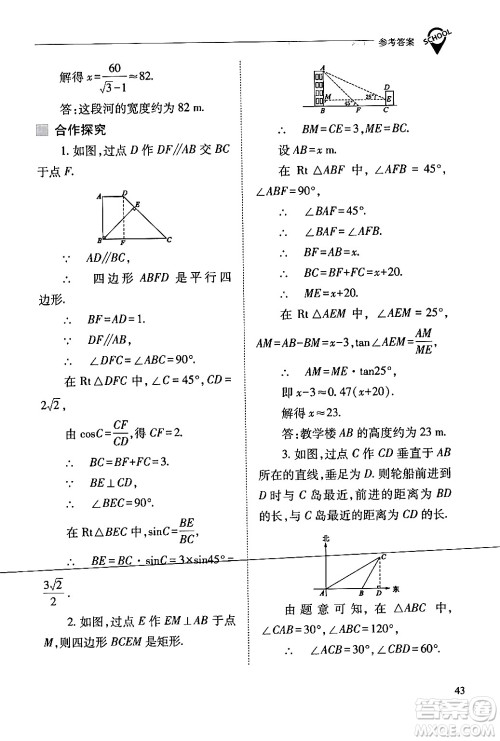 参考答案
SCHOOL
解得 x=60/(√3-1)≈82.
答:这段河的宽度约为 82 m.
合作探究
1. 如图,过点 D 作 DF∥AB 交 BC
于点 F.
A D
E
B F C
∵ AD∥BC,
∴ 四边形 ABFD 是平行四
边形.
∴ BF=AD=1.
∵ DF∥AB,
∴ ∠DFC=∠ABC=90°.
在 Rt△DFC 中,∠C=45°,CD=
2√2,
由 cosC=CF/CD,得 CF=2.
∴ BC=BF+FC=3.
∵ BE⊥CD,
∴ ∠BEC=90°.
在 Rt△BEC 中,sinC=BE/BC,
∴ BE=BC·sinC=3×sin45°=
3√2/2.
2. 如图,过点 E 作 EM⊥AB 于点
M,则四边形 BCEM 是矩形.
A
M 25° E
45°
B F C
∴ BM=CE=3,ME=BC.
设 AB=x m.
在 Rt△ABF 中,∠AFB=45°,
∠ABF=90°,
∴ ∠BAF=45°.
∴ ∠BAF=∠AFB.
∴ BF=AB=x.
∴ BC=BF+FC=x+20.
∴ ME=x+20.
在 Rt△AEM 中,∠AEM=25°,
AM=AB-BM=x-3,tan∠AEM=AM/ME,
∴ AM=ME·tan25°.
即 x-3≈0.47(x+20).
解得 x≈23.
答:教学楼 AB 的高度约为 23 m.
3. 如图,过点 C 作 CD 垂直于 AB
所在的直线,垂足为 D. 则轮船前进到 D
处时与 C 岛最近,前进的距离为 BD
的长,并且与 C 岛最近的距离为 CD.
北
C
A B D 东
由题意可知,在△ABC 中,
∠CAB=30°,∠ABC=120°,
∴ ∠ACB=30°,∠BCD=30°.
43